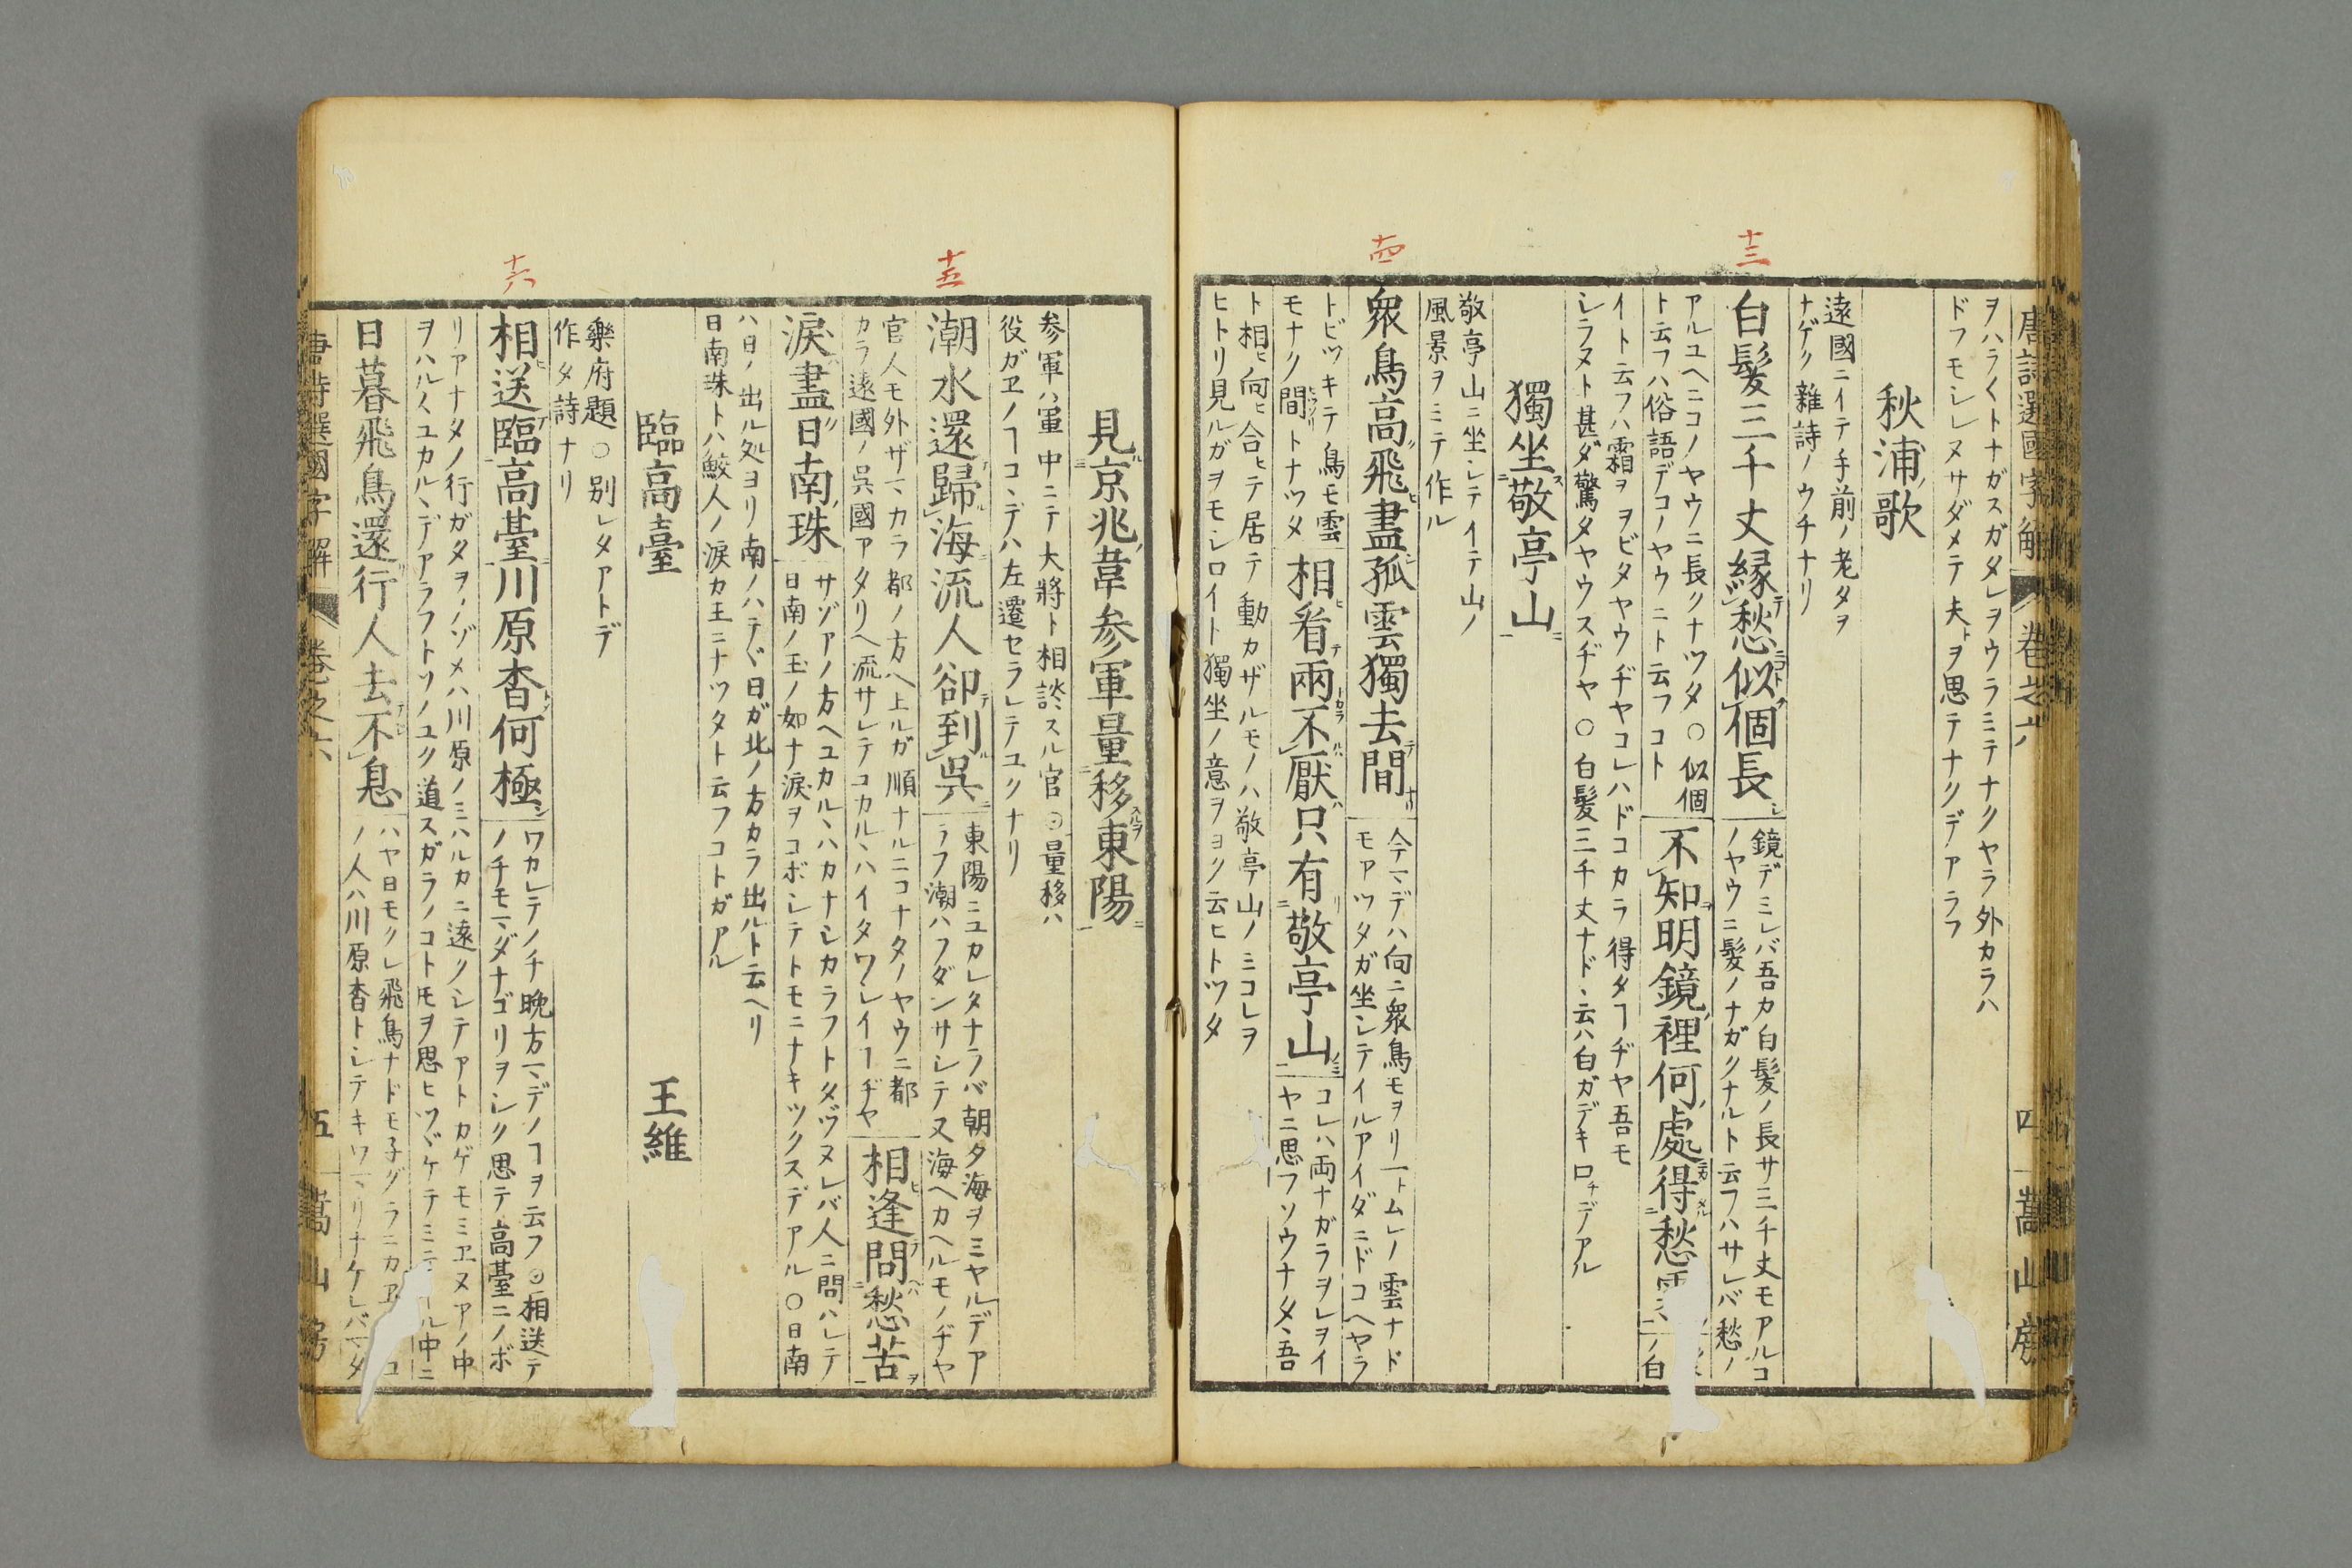 十三
十四
唐詩選國字解 巻之六 四 嵩山房
ヲハラ〱トナガスガタレヲウラミテナクヤラ外カラハ
ドフモシレヌサダメテ夫ヲ思テナクデアラフ
秋浦歌
遠國ニイテ手前ノ老タヲ
ナゲク雜詩ノウチナリ
白髪三千丈縁愁似個長
鏡デミレバ吾カ白髪ノ長サ三千丈モアルコ
ノヤウニ髪ノナガクナルト云フハサレバ愁ノ
アルユヘニコノヤウニ長クナツタ○似個
ト云フハ俗語デコノヤウニト云フコト
不知明鏡裡何處得愁
ノ白
イト云フハ霜ヲヲビタヤウヂヤコレハドコカラ得タヿヂヤ吾モ
シラヌト甚ダ驚タヤウスヂヤ○白髪三千丈ナド、云ハ白ガデキ口デアル
獨坐敬亭山
敬亭山ニ坐シテイテ山ノ
風景ヲミテ作ル
衆鳥高飛盡孤雲獨去間
今マデハ向ニ衆鳥モヲリ一トムレノ雲ナド
モアツタガ坐シテイルアイダニドコヘヤラ
トビツキテ鳥モ雲
モナク間トナツタ
相看兩不厭只有敬亭山
コレハ両ナガラヲレヲイ
ヤニ思フソウナタヽ吾
ト相ヒ向ヒ合ヒテ居テ動カザルモノハ敬亭山ノミコレヲ
ヒトリ見ルガヲモシロイト獨坐ノ意ヲヨク云ヒトツタ
十五
十六
見京兆韋参軍量移東陽
参軍ハ軍中ニテ大將ト相談スル官◎量移ハ
役ガヱノヿコヽデハ左遷セラレテユクナリ
潮水還歸海流人卻到呉
東陽ニユカレタナラバ朝夕海ヲミヤルデア
ラフ潮ハフダンサシテ又海ヘカヘルモノヂヤ
官人モ外ザマカラ都ノ方ヘ上ルガ順ナルニコナタノヤウニ都
カラ遠國ノ呉國アタリヘ流サレテコカルヽハイタワシイヿヂヤ
相逢問愁苦
涙盡日南珠
サゾアノ方ヘユカルヽハカナシカラフトタヅヌレバ人ニ問ハレテ
日南ノ玉ノ如ナ涙ヲコボシテトモニナキツクスデアル○日南
ハ日ノ出ル処ヨリ南ノハテヾ日ガ北ノ方カラ出ルト云ヘリ
日南珠トハ鮫人ノ涙カ王ニナツタト云フコトガアル
臨高臺 王維
樂府題○別レタアトデ
作タ詩ナリ
相送臨高臺川原杳何極
ワカレテノチ晩方マデノヿヲ云フ◎相送テ
ノチモマダナゴリヲシク思テ高臺ニノボ
リアナタノ行ガタヲノゾメハ川原ノミハルカニ遠クシテアトカゲモミヱヌアノ中
ヲハル〱ユカルヽデアラフトソノユク道スガラノコトモヲ思ヒツヾケテミ ル中ニ
日暮飛鳥還行人去不息
ハヤ日モクレ飛鳥ナドモ子グラニカヱ
ノ人ハ川原杳トシテキワマリナケレバマダ
唐詩選國字解 巻之六 五 嵩山房